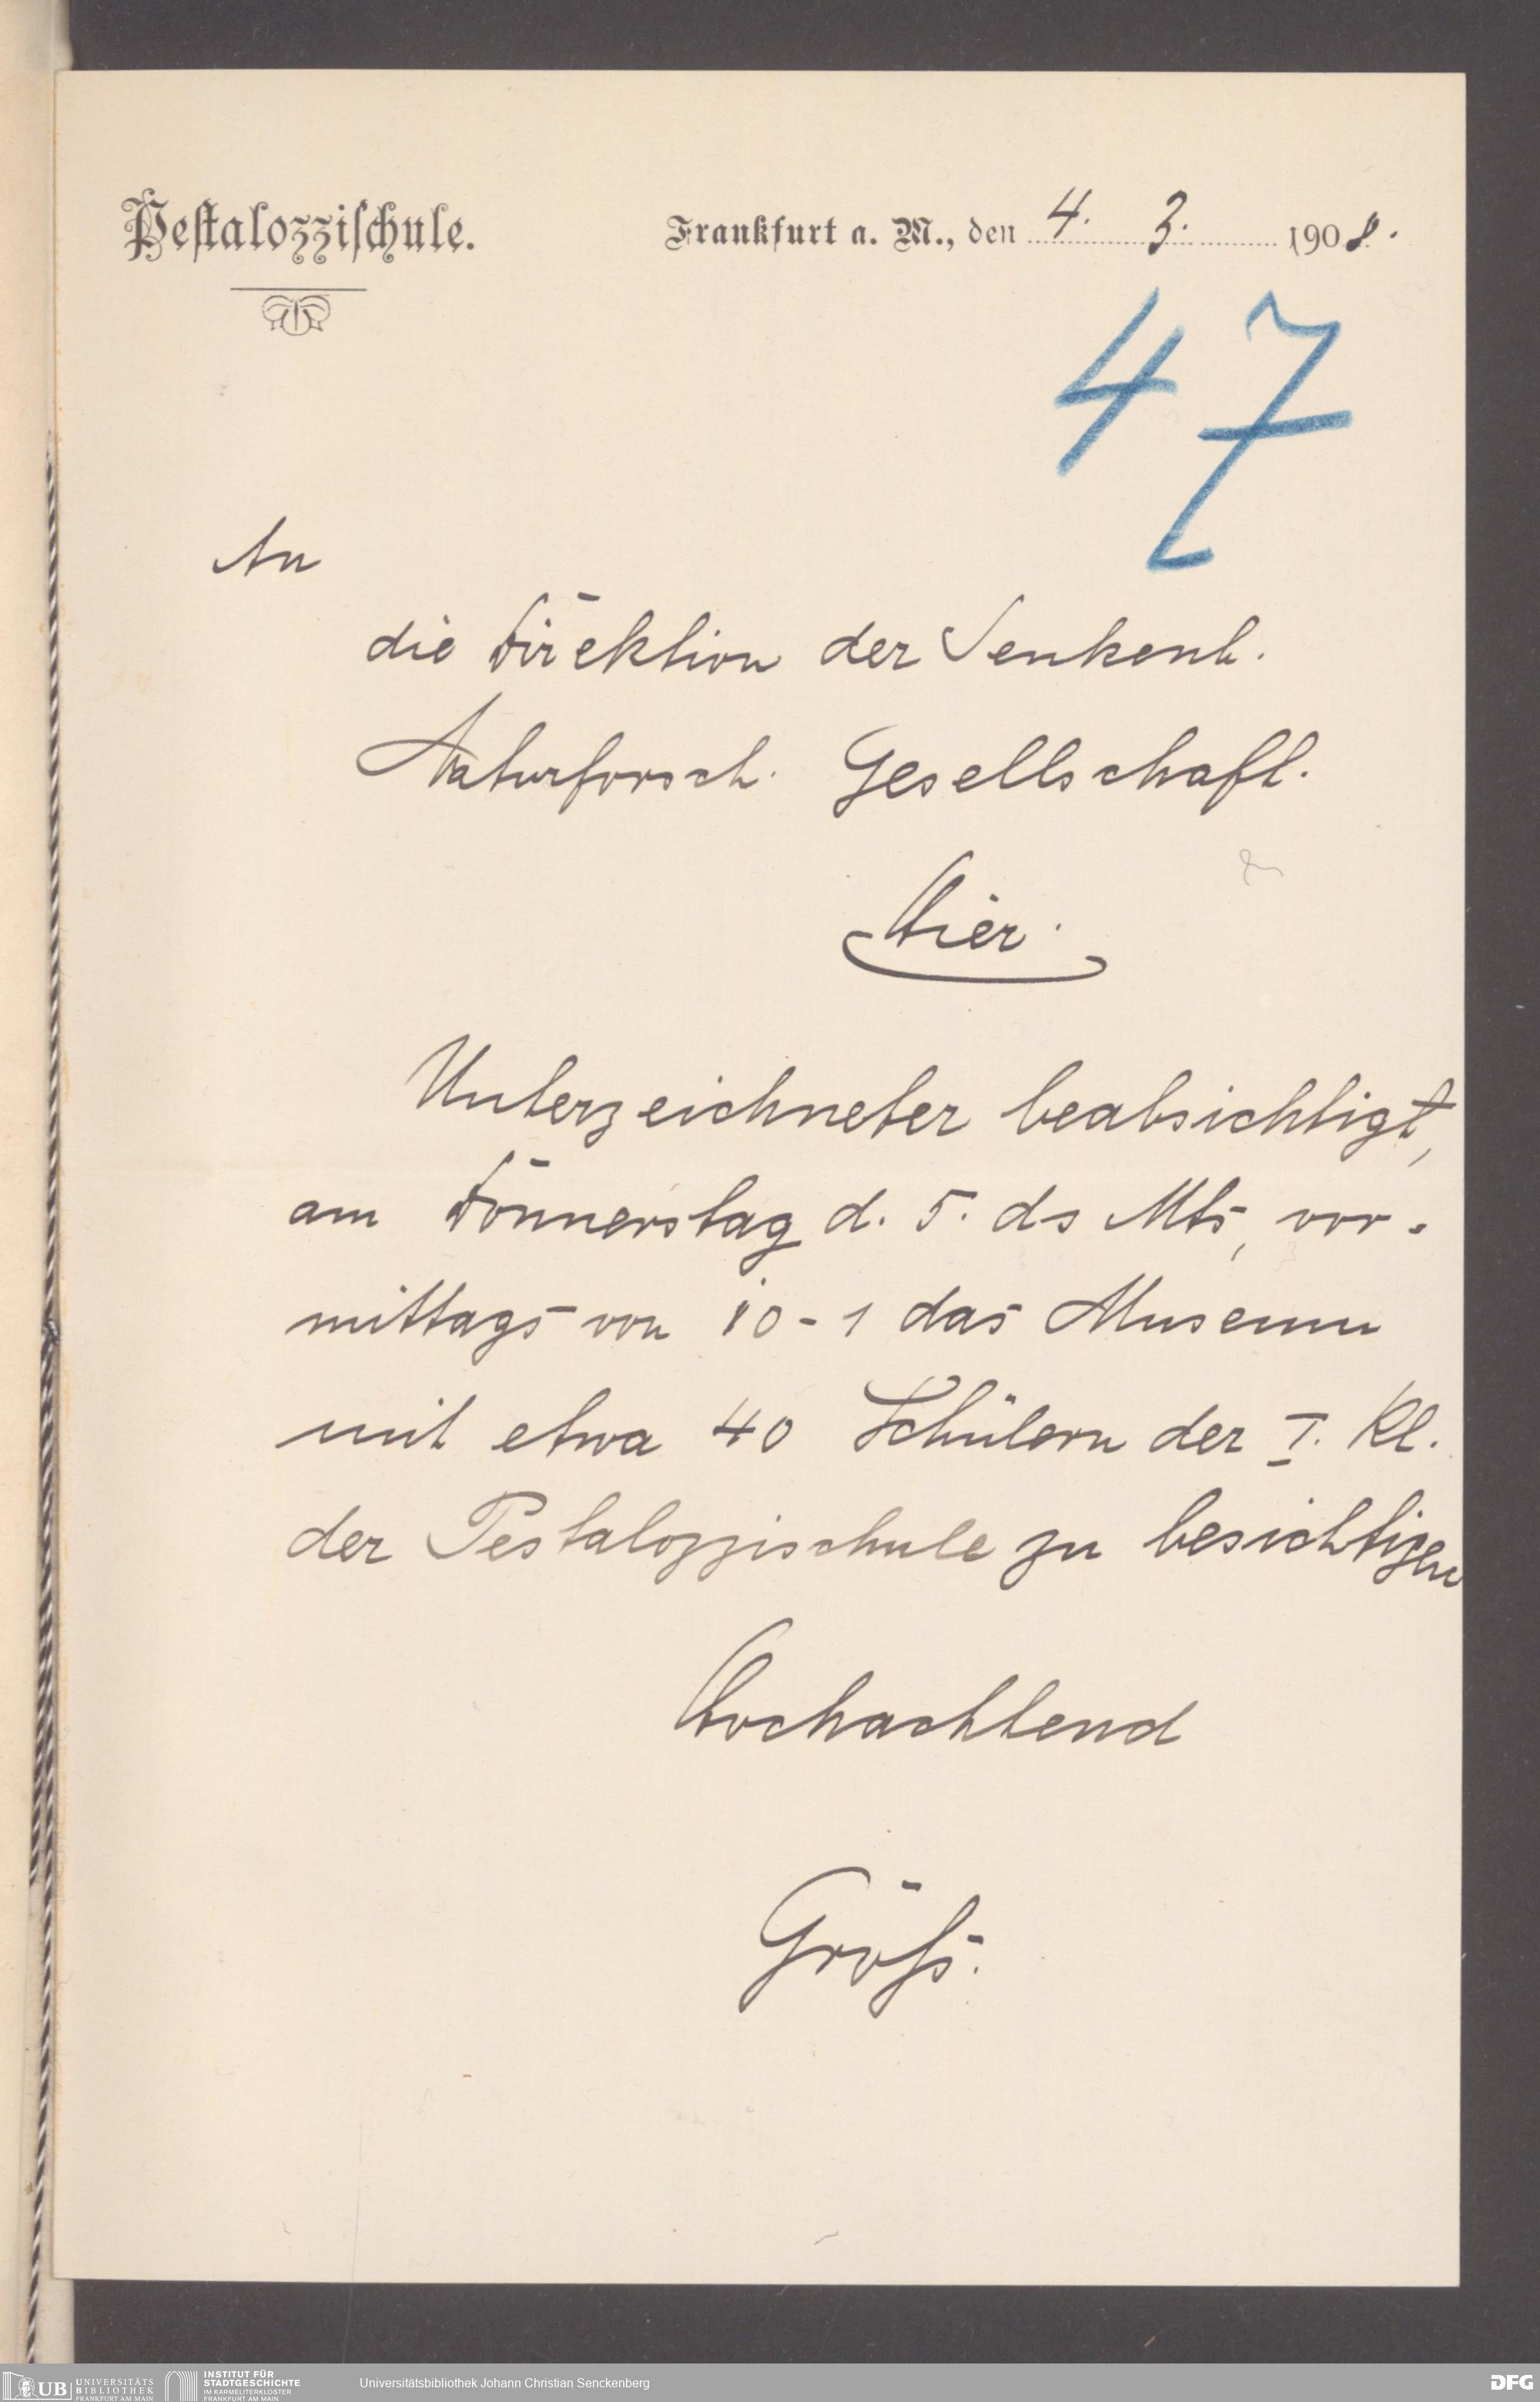 Pestalozzischule.
Frankfurt a. M., den 4. 3. 1908.
47
An
die Direktion der Senkenb.
Naturforsch. Gesellschaft.
Hier.
Unterzeichneter beabsichtigt,
am Donnerstag d. 5. ds Mts, vor-
mittags von 10-1 das Museum
mit etwa 40 Schülern der I. Kl.
der Pestalozzischule zu besichtigen
Hochachtend
Groß.
UB UNIVERSITÄTS
BIBLIOTHEK
FRANKFURT AM MAIN
INSTITUT FÜR
STADTGESCHICHTE
IM KARMELITERKLOSTER
FRANKFURT AM MAIN
Universitätsbibliothek Johann Christian Senckenberg
DFG